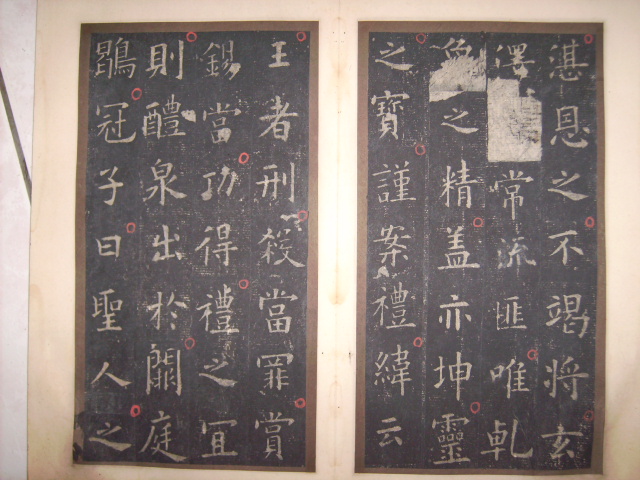 湛恩之不竭將玄
澤常流匪唯乾
象之精盖亦坤靈
之寶謹案禮緯云
王者刑殺當罪賞
錫當功得禮之宜
則醴泉出於闕庭
鶡冠子曰聖人之